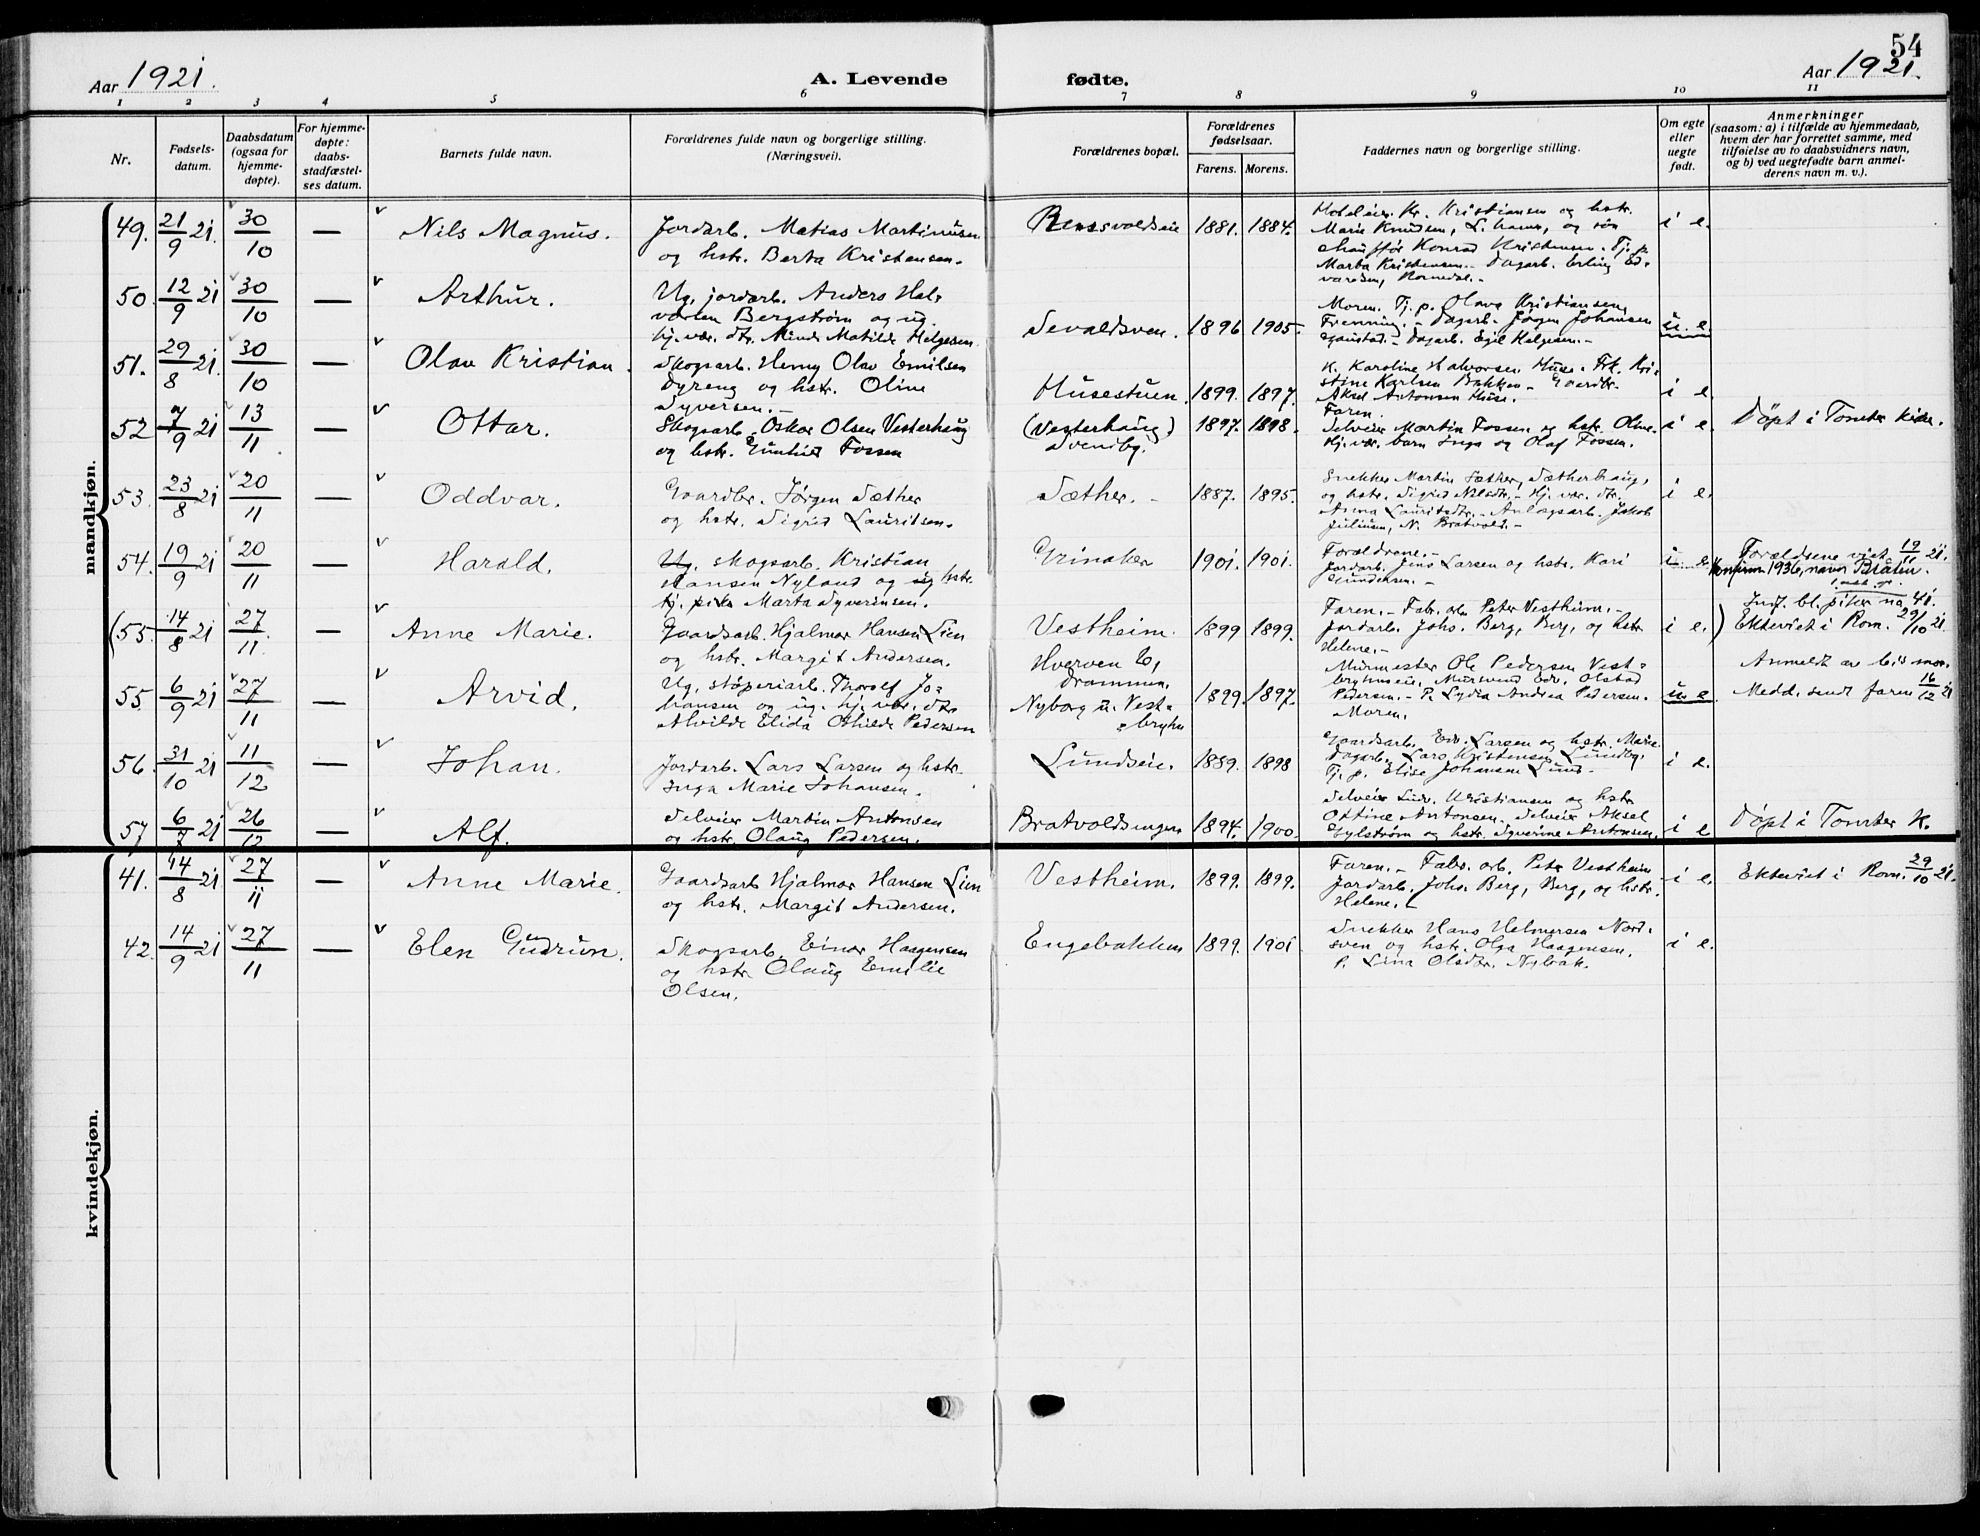 54
Aar 1921.
A. Levende
fødte.
Aar 1921.
1 2 3 4 5 6 7 8 9 10 11
Nr.
Fødsels-
datum.
Daabsdatum
(ogsaa for
hjemme-
døpte).
For hjemme-
døpte:
daabs-
stadfæstel-
ses datum.
Barnets fulde navn.
Forældrenes fulde navn og borgerlige stilling.
(Næringsvei).
Forældrenes bopæl.
Forældrenes
fødselsaar.
Farens. Morens.
Faddernes navn og borgerlige stilling.
Om egte
eller
uegte
født.
Anmerkninger
(saasom: a) i tilfælde av hjemmedaab,
hvem der har forrettet samme, med
tilføielse av to daabsvidners navn,
og b) ved uegtefødte barn anmel-
derens navn m. v.).
mandkjøn.
49. 21/9 21. 30/10 — Nils Magnus.
Jordarb. Matias Martinusen
og hstr. Berta Kristensen.
1881. 1884.
Kr. Kristiansen og hstr.
Marie Knudsen, og søn
chauffør Konrad Kristensen. Tj. p.
Marta Kristensen. - Dagarb. Erling Ed-
vardsen, Romedal. -
i e.
50. 12/9 21 30/10 — Arthur.
Ug. jordarb. Anders Hal-
vorsen Bergstrøm og ug.
hj. vær. dtr. Minda Matilde Helgesen
Sevaldsven. 1896 1905.
Moren. Tj. p. Olava Kristiansen,
Frenning. - Dagarb. Jørgen Johansen
Gaustad. - Dagarb. Egil Helgesen. -
u. e.
51. 29/8 21. 30/10 — Olav Kristian.
Skogsarb. Henry Olav Emilsen
Dyreng og hstr. Oline
Syversen. -
Husestuen. 1899. 1897.
K. Karoline Halvorsen Huse. Frk. Kri-
stine Karlsen Bakken - Gaardbr.
Aksel Antonsen Huse.
i e.
52 7/9 21 13/11 — Ottar.
Skogsarb. Oskar Olsen Vesterhaug
og hstr. Gunhild Fossen
(Vesterhaug)
Svendby. 1897. 1898.
Faren.
Selveier Martin Fossen og hstr. Oline.
Hj. vær. barn Inga og Olaf Fossen.
i e.
Døpt i Tomter kirke.
53. 23/8 21 20/11 — Oddvar.
Gaardbr. Jørgen Sæther
og hstr. Sigrid Lauritsen.
Sæther. - 1887. 1895.
Snekker Martin Sæther, Sætherhaug,
og hstr. Sigrid Nilsdtr. - Hj. vær. dtr.
Anna Lauritsdtr. - Anlægsarb. Jakob
Juliusen, N. Bratvold. -
i e.
54. 19/9 21 20/11 — Harald.
Ug. skogsarb. Kristian
Hansen Nyland og ug hstr.
tj. pike Marta Syverinsen.
Grinaker 1901. 1901.
Forældrene. -
Jordarb. Jens Larsen og hstr. Kari
Gundersen. -
i. e.
Forældrene viet 19/11 21.
Konfirm 1936, navn Bråten.
(55. 14/8 21 27/11. — Anne Marie.
Gaardsarb. Hjalmar Hansen Lien
og hstr. Margit Andersen.
Vestheim. 1899 1899.
Faren. - Fab. arb. Peter Vestheim. -
Jordarb. Johs. Berg, Berg, og hstr
Helene. -
i e.)
Indf. bl. piker nr 41.
Ektevict i Rom. 29/10 21.
55. 6/9 21 27/11 — Arvid.
Ug. støperiarb. Thorolf Jo-
hansen og ug. hj. vær. dtr.
Alvilde Elida Othilde Pedersen
Hverven 6,
Drammen.
Nyborg u. Vest-
byhn 1899. 1897.
Murmester Ole Pedersen Vest-
Mursvend Edv. Olstad
Pedersen. - P. Lydia Andrea Pedersen.
Moren.
u. e
Anmeldt av
Medd. sendt faren 16/12 21
56. 31/10 21 11/12 — Johan.
Jordarb. Lars Larsen og hstr.
Inga Marie Johansen.
Lundseie. 1889. 1898
Gaardsarb. Edv. Larsen og hstr. Marie.
Dagarb. Lars Kristensen Lundby.
Tj. p. Elise Johansen Lund.
i e.
57 6/7 21 26/12 — Alf.
Selveier Martin Antonsen
og hstr. Olaug Pedersen.
Bratvoldsengen 1894. 1900
Selveier Ludv. Kristiansen og hstr
Ottine Antonsen. Selveier Aksel
Gylstrøm og hstr. Syverine Antonsen.
i e
Døpt i Tomter K.
kvindekjøn.
41. 14/8 21 27/11 — Anne Marie.
Gaardsarb Hjalmar Hansen Lien
og hstr. Margit Andersen.
Vestheim. 1899. 1899.
Faren. - Fabr. arb. Peter Vestheim
Jordarb. Johs. Berg, Berg, og hstr.
Helene. -
i e.
Ektevict i Rom. 29/10 21.
42. 14/9 21 27/11 — Elen Gudrun.
Skogsarb. Einar Haagensen
og hstr. Olaug Emilie
Olsen.
Engebakken 1899. 1901
Snekker Hans Helmersen Nord-
sven og hstr. Olga Haagensen.
P. Lina Olsdtr. Nybak.
i e.